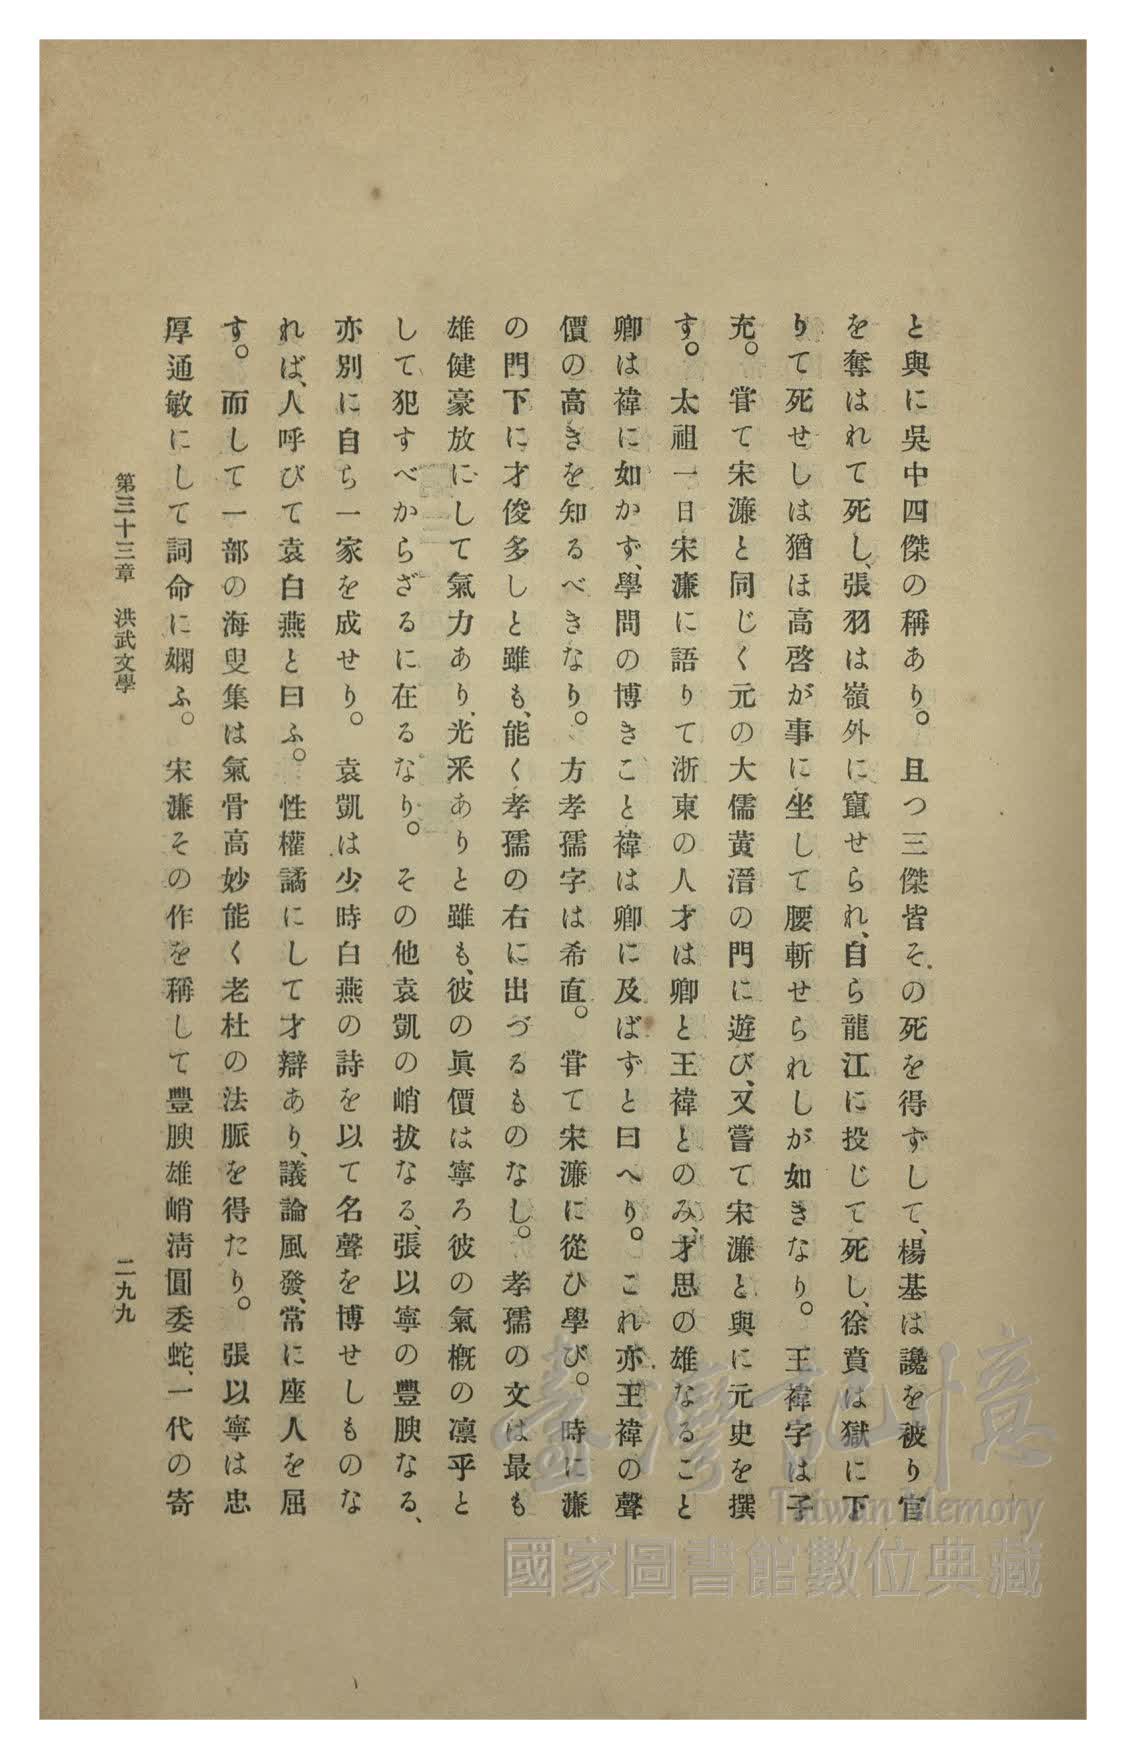 と與に吳中四傑の稱あり。且つ三傑皆その死を得ずして、楊基は讒を被り官
を奪はれて死し、張羽は嶺外に竄せられ、自ら龍江に投じて死し、徐賁は獄に下
りて死せしは猶ほ高啓が事に坐して腰斬せられしが如きなり。王褘字は子
充。嘗て宋濂と同じく元の大儒黄溍の門に遊び、又嘗て宋濂と與に元史を撰
す。太祖一日宋濂に語りて浙東の人才は卿と王褘とのみ、才思の雄なること
卿は褘に如かず、學問の博きこと褘は卿に及ばずと曰へり。これ亦王褘の聲
價の高きを知るべきなり。方孝孺字は希直。嘗て宋濂に從ひ學び。時に濂
の門下に才俊多しと雖も、能く孝孺の右に出づるものなし。孝孺の文は最も
雄健豪放にして氣力あり、光釆ありと雖も、彼の眞價は寧ろ彼の氣概の凛乎と
して犯すべからざるに在るなり。その他袁凱の峭拔なる、張以寧の豐腴なる、
亦別に自ら一家を成せり。袁凱は少時白燕の詩を以て名聲を博せしものな
れば、人呼びて袁白燕と曰ふ。性權譎にして才辯あり、議論風發、常に座人を屈
す。而して一部の海叟集は氣骨高妙能く老杜の法脈を得たり。張以寧は忠
厚通敏にして詞命に嫻ふ。宋濂その作を稱して豐腴雄峭淸圓委蛇、一代の寄
第三十三章 洪武文學 二九九
臺灣記憶
Taiwan Memory
國家圖書館數位典藏